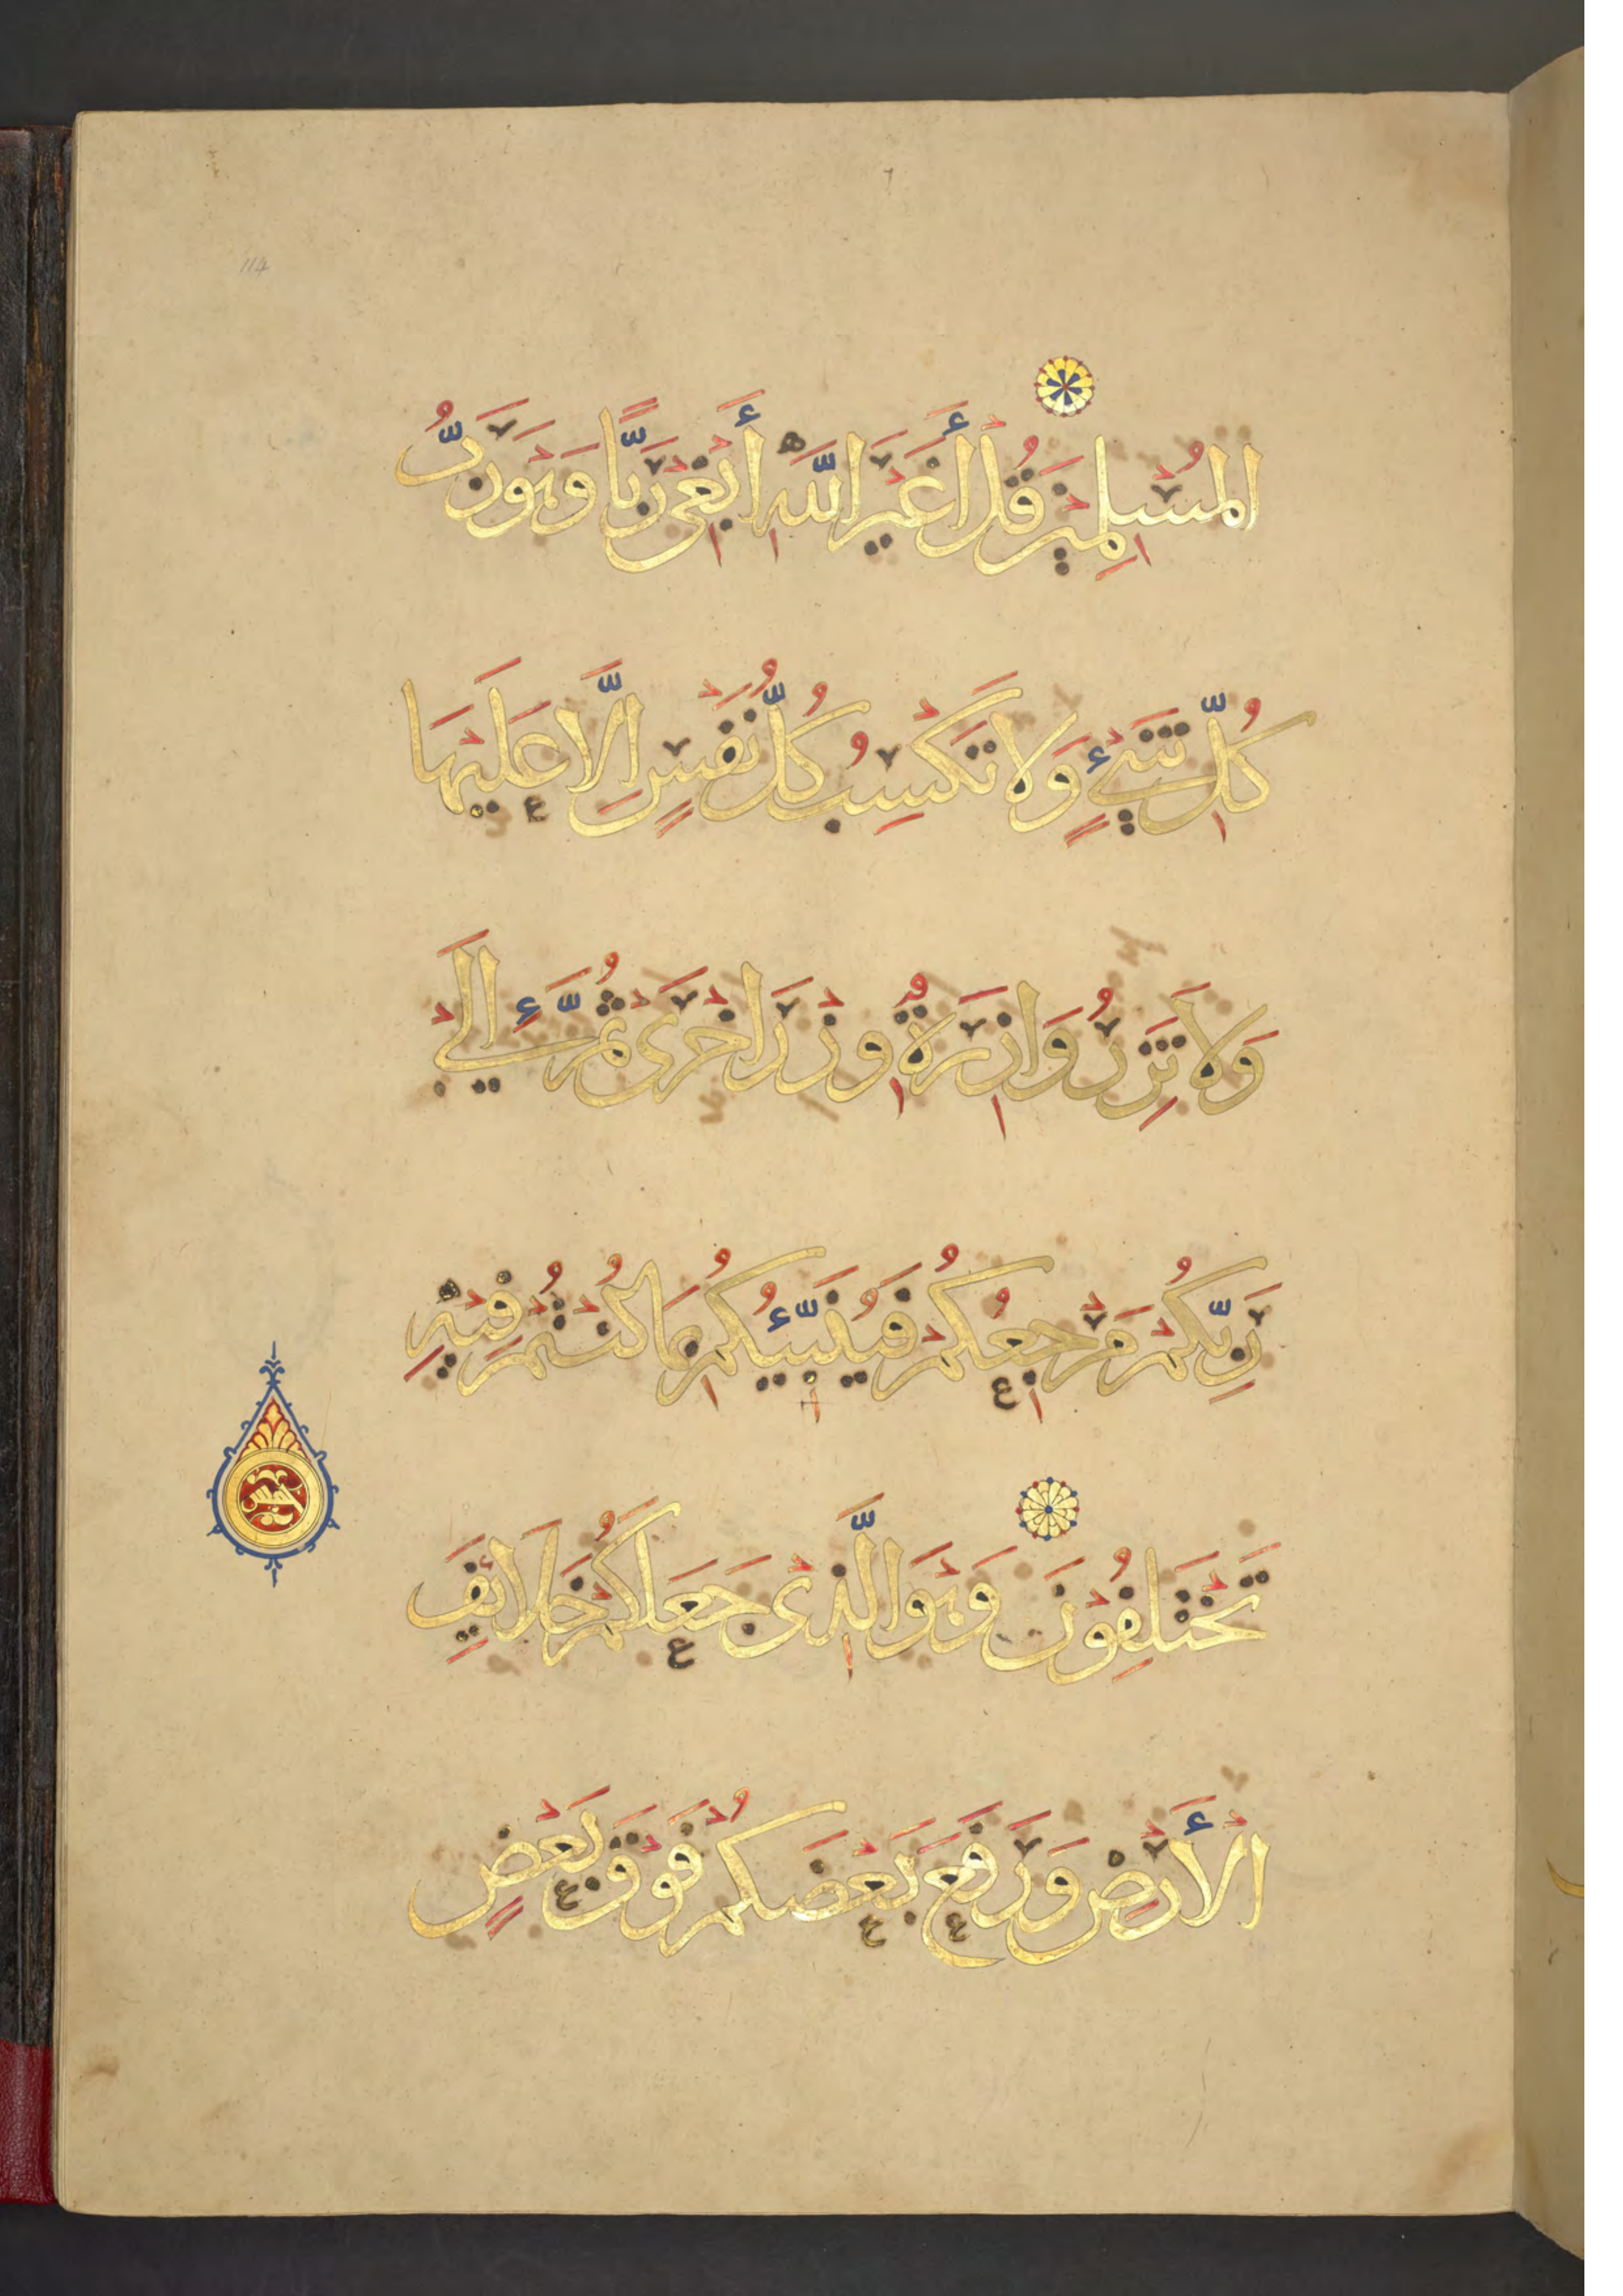 المُسْلِمِينَ قُلْ أَغَيْرَ اللَّهِ أَبْغِي رَبًّا وَهُوَ رَبُّ
كُلِّ شَيْءٍ وَلَا تَكْسِبُ كُلُّ نَفْسٍ إِلَّا عَلَيْهَا
وَلَا تَزِرُ وَازِرَةٌ وِزْرَ أُخْرَى ثُمَّ إِلَى
رَبِّكُمْ مَرْجِعُكُمْ فَيُنَبِّئُكُمْ بِمَا كُنْتُمْ فِيهِ
تَخْتَلِفُونَ وَهُوَ الَّذِي جَعَلَكُمْ خَلَائِفَ
الْأَرْضِ وَرَفَعَ بَعْضَكُمْ فَوْقَ بَعْضٍ
114